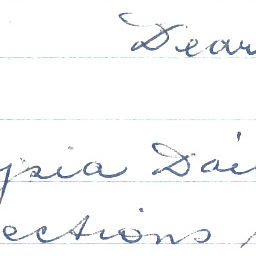 Dear
ysia Dai
ections